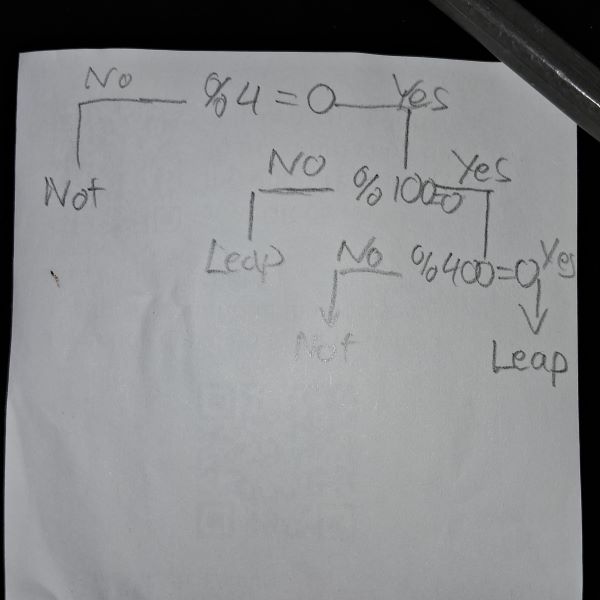 No %4=0 Yes
Not NO %100=0 Yes
Leap No %400=0 Yes
Not Leap